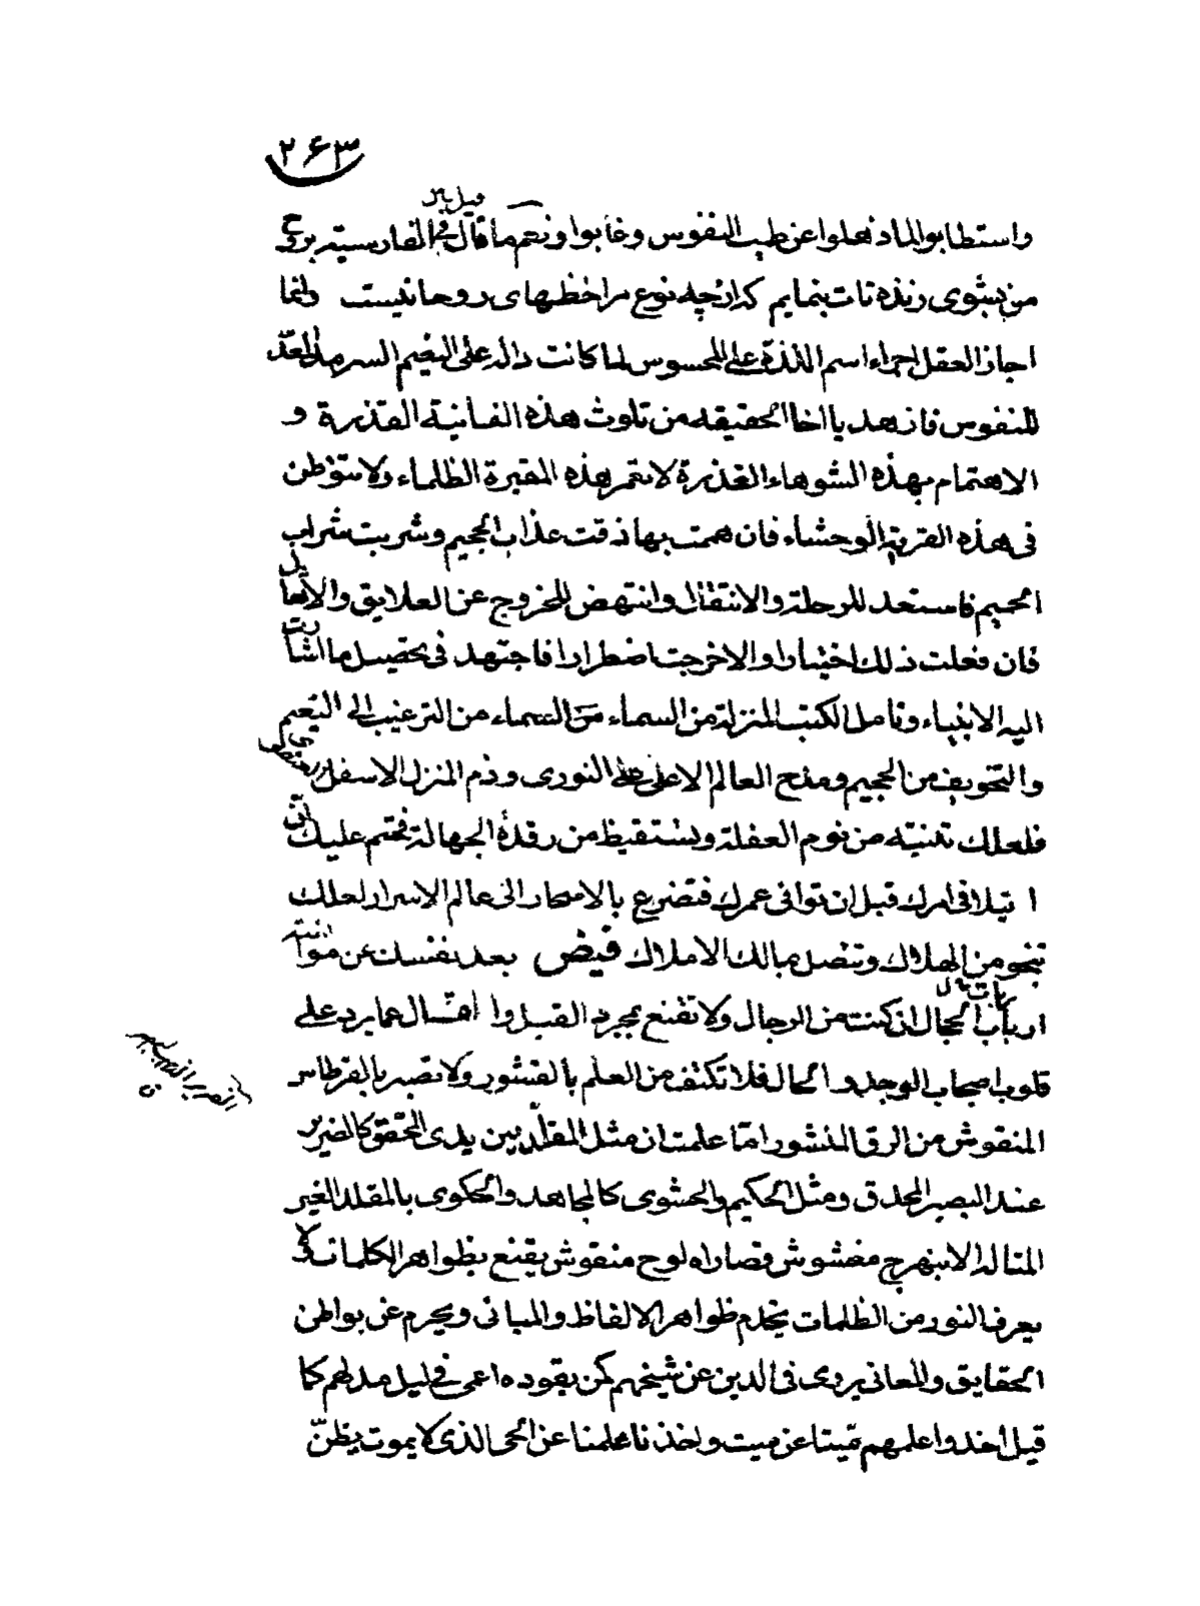 ۲۶۳
قيل بس
واستطابوا الماء ذهلوا عن طيب النفوس وغابوا ونعم ما قال فى الفارسيته بروح
من بشوى زنده تات بنمايم كه ازچه نوع مرا خظهاى روحانيست وانما
اجاز العقل اجراء اسم اللذة على المحسوس لما كانت دالة على النعيم السرمد المعدّ
للنفوس فازهد يا اخا الحقيقه من تلوث هذه الفانية القذرة و
الاهتمام بهذه الشوهاء القذرة لا تعمر هذه المقبرة الظلماء ولا تتوطن
فى هذه القرية الوحشاء فان هممت بها ذقت عذاب الجحيم وشربت شراب
الحميم فاستعد للرحلة والانتقال وانتهض للخروج عن العلايق والاثقال
فان فعلت ذلك اختيارا والا خرجت اضطرارا فاجتهد فى تحصيل ما اشارت
اليه الانبياء وتامل الكتب المنزلة من السماء من السماء من الترغيب الى النعيم
والتخويف من الجحيم ومدح العالم الاعلى النورى وذم المنزل الاسفل
فلعلك تتنبّه من نوم الغفلة وتستيقظ من رقدة الجهالة فحتم عليك ان
تتلافى امرك قبل ان توافى عمرك فتضرع بالاسحار الى عالم الاسرار لعلك
تنجو من الهلاك وتتصل بمالك الاملاك فيض بعد نفسك عن موانسة
ارباب الحجال ان كنت من الرجال ولا تقنع بمجرد القيل وا اسال عما يرد على
قلوب اصحاب الوجد و الحال فلا تكتف من العلم بالقشور ولا تصبر بالقرطاس
المنقوش من الرق المنشور امّا علمت ان مثل المقلّد بين يدى المحقق كالضرير
عند البصير المحدق ومثل الحكيم والحشوى كالمجاهد والحكوى بالمقلد الغير
المتاله الا بنهرج مغشوش قصاراه لوح منقوش يقنع بظواهر الكلمات ولا
يعرف النور من الظلمات يخدم ظواهر الالفاظ والمبانى ويحرم عن بواطن
الحقايق والمعانى يروى فى الدين عن شيخهم كمن يقوده اعمى فى ليل مدلهم كما
قيل اخذوا علمهم ميتا عن ميت واخذنا علمنا عن الحى الذى لا يموت يظنّ